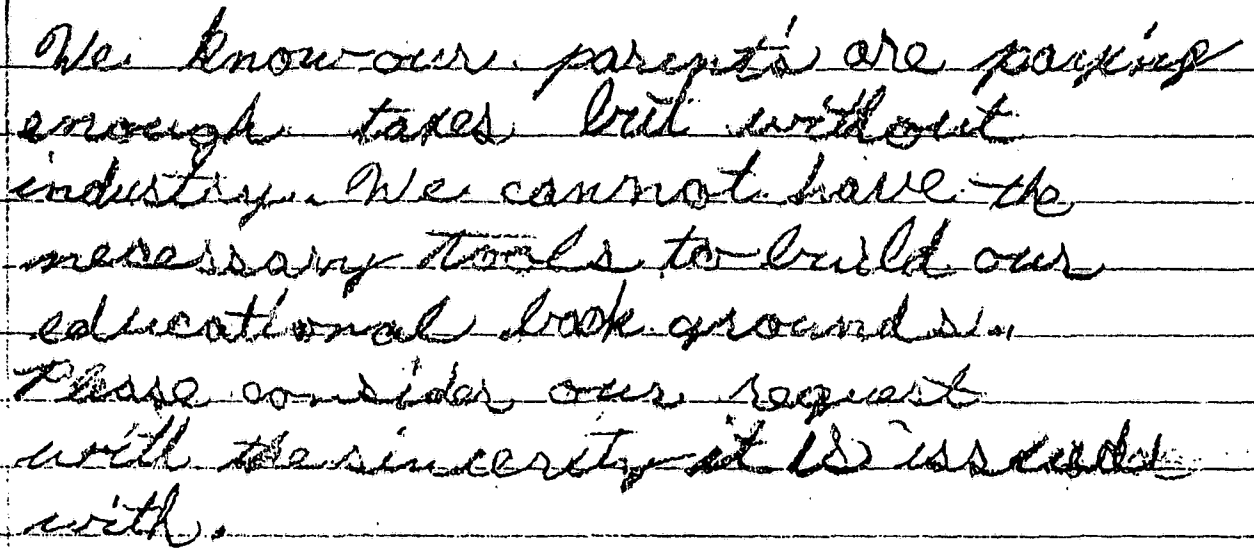 We know our parent's are paying
enough taxes but without
industry. We cannot have the
necessary tools to build our
educational back grounds.
Please consider our request
with the sincerity it is issued
with.